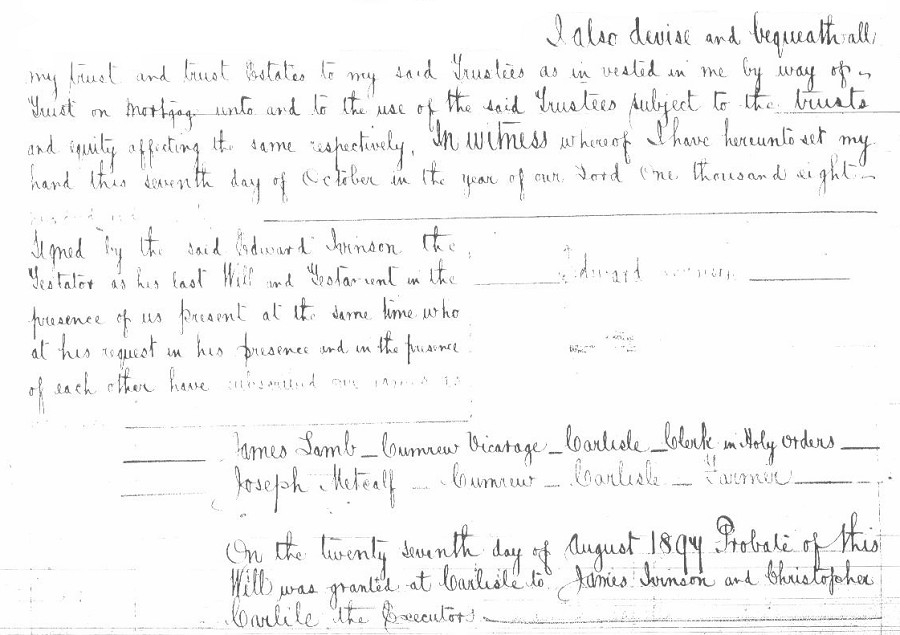 I also devise and bequeath all
my trust and trust Estates to my said Trustees as in vested in me by way of
Trust on Mortgag unto and to the use of the said Trustees subject to the trusts
and equity affecting the same respectively. In witness whereof I have hereunto set my
hand this seventh day of October in the year of our Lord One thousand eight
Signed by the said Edward Ivinson the
Testator as his last Will and Testament in the
presence of us present at the same time who
at his request in his presence and in the presence
of each other have subscribed our names as
Edward Ivinson
James Lamb – Cumrew Vicarage – Carlisle – Clerk in Holy Orders
Joseph Metcalf – Cumrew – Carlisle – Farmer
On the twenty seventh day of August 1897 Probate of this
Will was granted at Carlisle to James Ivinson and Christopher
Carlile the Executors